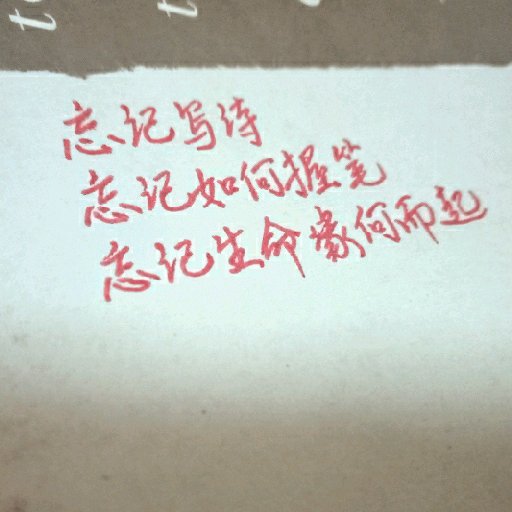 忘记写诗
忘记如何握笔
忘记生命缘何而起